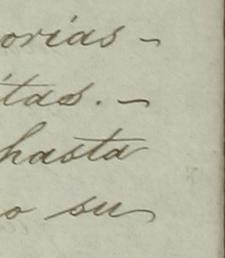 orias -
itas. -
hasta
o su